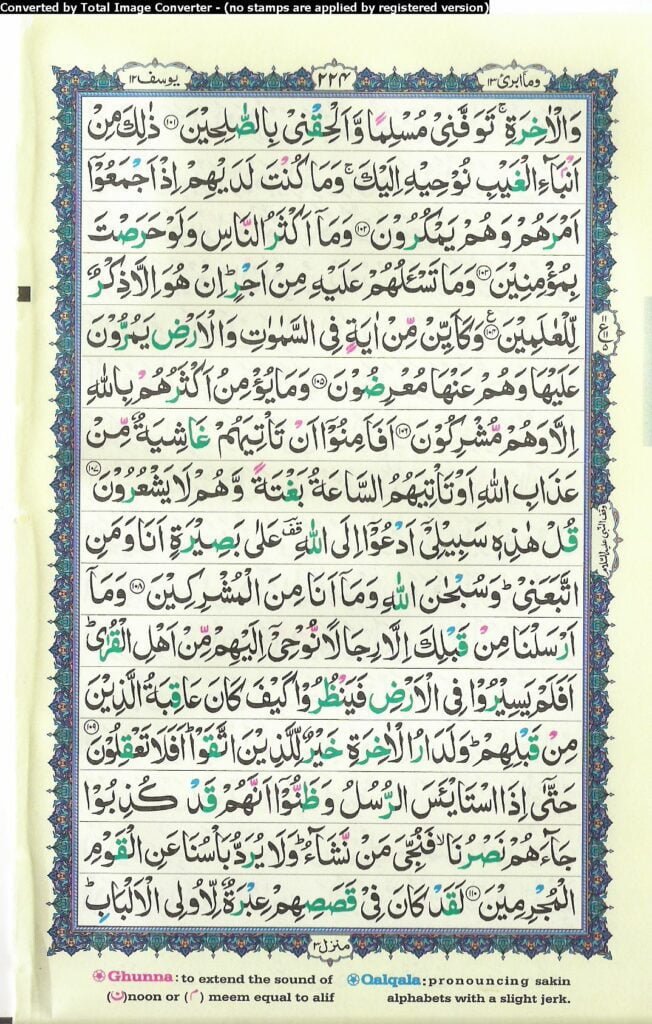 Converted by Total Image Converter - (no stamps are applied by registered version)
وما ابرئ ١٣
٢٢٤
يوسف ١٢
وَالْاٰخِرَةِ ۚ تَوَفَّنِیْ مُسْلِمًا وَّاَلْحِقْنِیْ بِالصّٰلِحِیْنَ ﴿۱۰۱﴾ ذٰلِكَ مِنْ
اَنْۢبَآءِ الْغَیْبِ نُوْحِیْهِ اِلَیْكَ ۚ وَمَا كُنْتَ لَدَیْهِمْ اِذْ اَجْمَعُوْۤا
اَمْرَهُمْ وَهُمْ یَمْكُرُوْنَ ﴿۱۰۲﴾ وَمَاۤ اَكْثَرُ النَّاسِ وَلَوْ حَرَصْتَ
بِمُؤْمِنِیْنَ ﴿۱۰۳﴾ وَمَا تَسْـَٔلُهُمْ عَلَیْهِ مِنْ اَجْرٍ ؕ اِنْ هُوَ اِلَّا ذِكْرٌ
لِّلْعٰلَمِیْنَ ﴿۱۰۴﴾ وَكَاَیِّنْ مِّنْ اٰیَةٍ فِی السَّمٰوٰتِ وَالْاَرْضِ یَمُرُّوْنَ
عَلَیْهَا وَهُمْ عَنْهَا مُعْرِضُوْنَ ﴿۱۰۵﴾ وَمَا یُؤْمِنُ اَكْثَرُهُمْ بِاللّٰهِ
اِلَّا وَهُمْ مُّشْرِكُوْنَ ﴿۱۰۶﴾ اَفَاَمِنُوْۤا اَنْ تَاْتِیَهُمْ غَاشِیَةٌ مِّنْ
عَذَابِ اللّٰهِ اَوْ تَاْتِیَهُمُ السَّاعَةُ بَغْتَةً وَّهُمْ لَا یَشْعُرُوْنَ ﴿۱۰۷﴾
قُلْ هٰذِهٖ سَبِیْلِیْۤ اَدْعُوْۤا اِلَی اللّٰهِ ؔقف عَلٰی بَصِیْرَةٍ اَنَا وَمَنِ
اتَّبَعَنِیْ ؕ وَسُبْحٰنَ اللّٰهِ وَمَاۤ اَنَا مِنَ الْمُشْرِكِیْنَ ﴿۱۰۸﴾ وَمَاۤ
اَرْسَلْنَا مِنْ قَبْلِكَ اِلَّا رِجَالًا نُّوْحِیْۤ اِلَیْهِمْ مِّنْ اَهْلِ الْقُرٰی ؕ
اَفَلَمْ یَسِیْرُوْا فِی الْاَرْضِ فَیَنْظُرُوْا كَیْفَ كَانَ عَاقِبَةُ الَّذِیْنَ
مِنْ قَبْلِهِمْ ؕ وَلَدَارُ الْاٰخِرَةِ خَیْرٌ لِّلَّذِیْنَ اتَّقَوْا ؕ اَفَلَا تَعْقِلُوْنَ ﴿۱۰۹﴾
حَتّٰۤی اِذَا اسْتَایْـَٔسَ الرُّسُلُ وَظَنُّوْۤا اَنَّهُمْ قَدْ كُذِبُوْا
جَآءَهُمْ نَصْرُنَا ۙ فَنُجِّیَ مَنْ نَّشَآءُ ؕ وَلَا یُرَدُّ بَاْسُنَا عَنِ الْقَوْمِ
الْمُجْرِمِیْنَ ﴿۱۱۰﴾ لَقَدْ كَانَ فِیْ قَصَصِهِمْ عِبْرَةٌ لِّاُولِی الْاَلْبَابِ ؕ
وقف النبی علیه السلام
منزل ٣
Ghunna: to extend the sound of
(ن) noon or (م) meem equal to alif
Qalqala: pronouncing sakin
alphabets with a slight jerk.